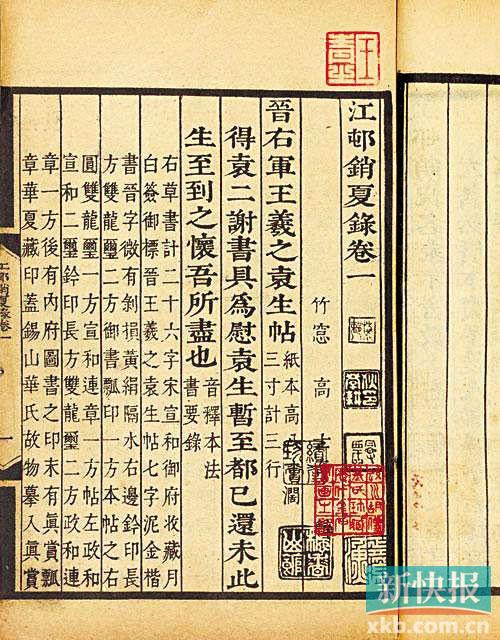 江邨銷夏錄卷一
竹窓 高
晉右軍王羲之袁生帖
紙本高
三寸計三行
得袁二謝書具為慰袁生暫至都已還未此
生至到之懷吾所盡也
音釋本法
書要錄
右草書計二十六字宋宣和御府收藏月
白簽御標晉王羲之袁生帖七字泥金楷
書晉字微有剝損黃絹隔水右邊鈐印長
方雙龍璽二方御書瓢印一方本帖之右
圓雙龍璽一方宣和連章一方帖左政和
宣和二璽鈐印長方雙龍璽二方政和連
章一方後有內府圖書之印末有眞賞瓢
章華夏藏印蓋錫山華氏故物摹入眞賞
江邨銷夏錄卷一
一
新快报
xkb.com.cn